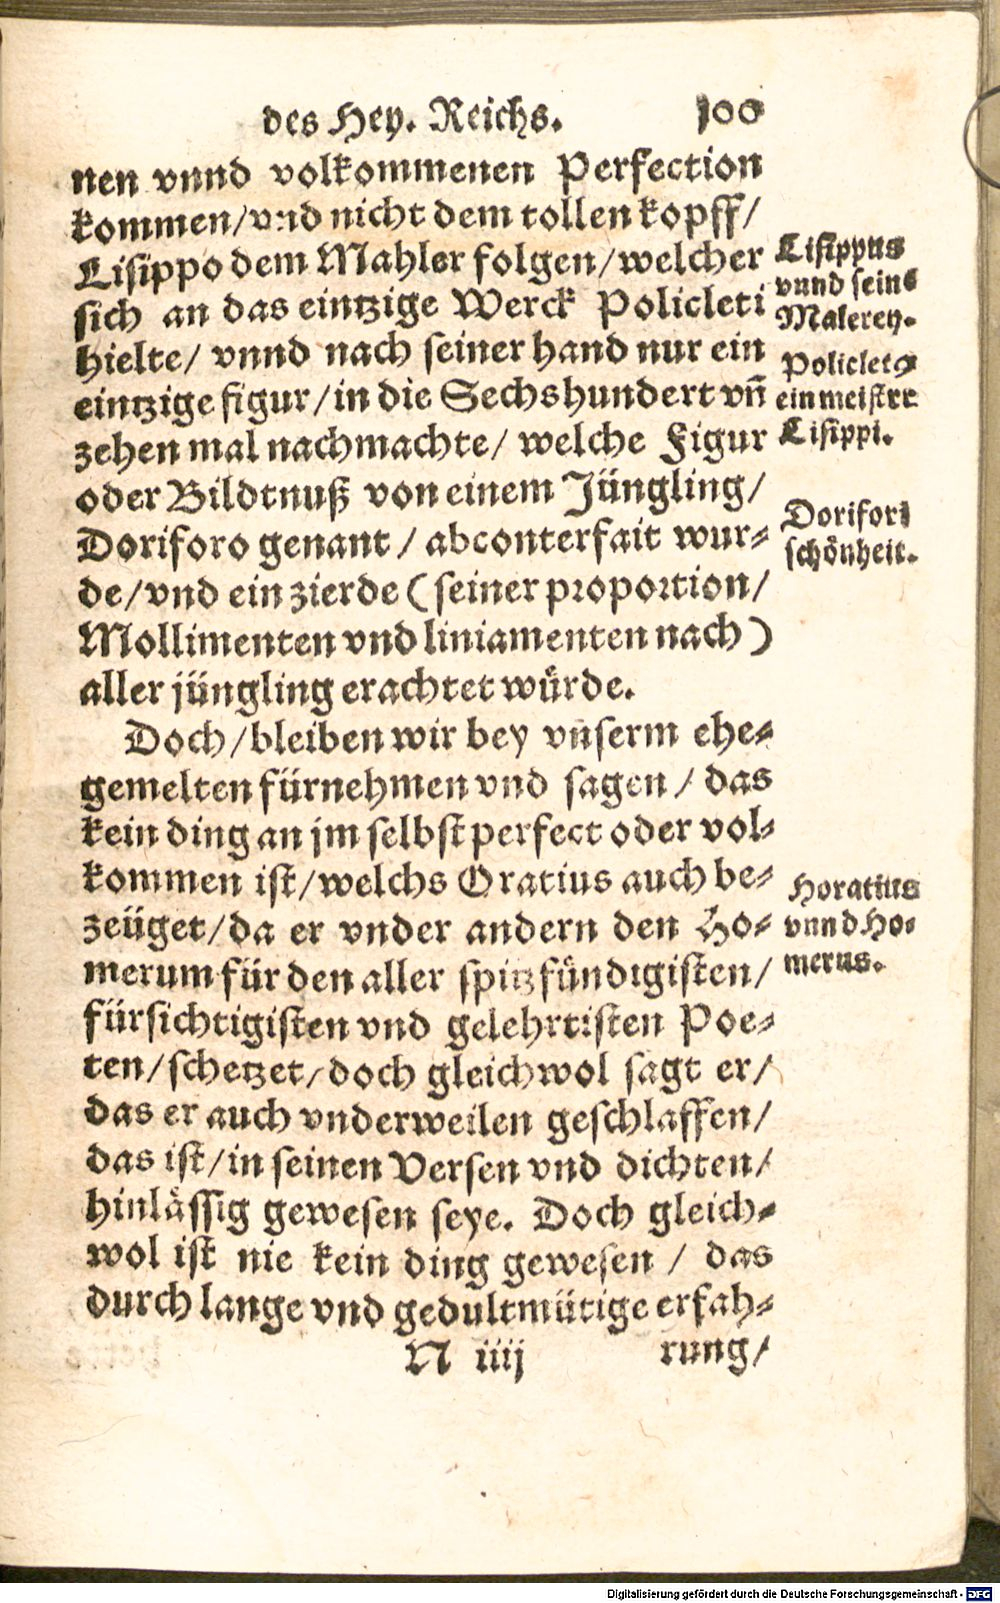 des Hey. Reichs. 100
nen vnnd volkommenen Perfection
kommen/vnd nicht dem tollen kopff/
Lisippo dem Mahler folgen/welcher
sich an das eintzige Werck Policleti
hielte/ vnnd nach seiner hand nur ein
eintzige figur/in die Sechshundert vñ
zehen mal nachmachte/ welche Figur
oder Bildtnuß von einem Jüngling/
Doriforo genant/ abconterfait wur-
de/vnd ein zierde (seiner proportion/
Mollimenten vnd liniamenten nach)
aller jüngling erachtet würde.
Doch/bleiben wir bey vnserm ehe-
gemelten fürnehmen vnd sagen/ das
kein ding an jm selbst perfect oder vol-
kommen ist/welchs Oratius auch be-
zeüget/da er vnder andern den Ho-
merum für den aller spitzfündigisten/
fürsichtigisten vnd gelehrtisten Poe-
ten/schetzet/doch gleichwol sagt er/
das er auch vnderweilen geschlaffen/
das ist/in seinen Versen vnd dichten/
hinlässig gewesen seye. Doch gleich-
wol ist nie kein ding gewesen/ das
durch lange vnd gedultmütige erfah-
N iiij rung/
Lisippus
vnnd seins
Malerey.
Policletus
ein meistre
Lisippi.
Dorifori
schönheit.
Horatius
vnnd Ho-
merus.
Digitalisierung gefördert durch die Deutsche Forschungsgemeinschaft - DFG